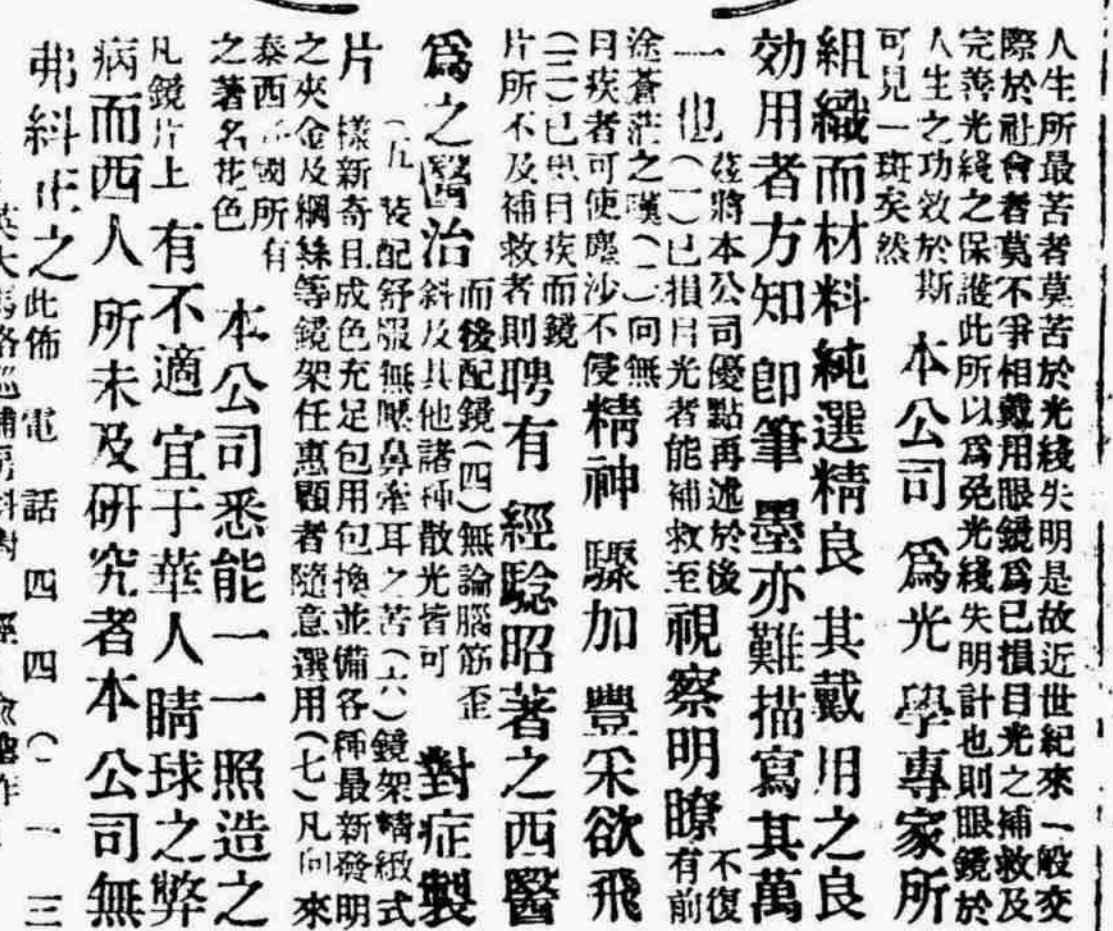 人生所最苦者莫苦於光綫失明是故近世紀來一般交
際於社會者莫不爭相戴用眼鏡爲已損目光之補救及
完善光綫之保護此所以爲免光綫失明計也則眼鏡於
人生之功效於斯
可見一斑矣然
本公司爲光學專家所
組織而材料純選精良其戴用之良
効用者方知卽筆墨亦難描寫其萬
一也
茲將本公司優點再述於後
(一)已損目光者能補救至
視察明瞭
不復有前
塗蒼茫之嘆(二)向無
目疾者可使塵沙不侵
精神驟加豐采欲飛
(三)已患目疾而鏡
片所不及補救者則
聘有經騐昭著之西醫
爲之醫治
而後配鏡(四)無論腦筋歪
斜及其他諸種散光皆可
對症製
片
(五)裝配舒服無壓鼻牽耳之苦(六)鏡架精緻式
樣新奇且成色充足包用包換並備各種最新發明
之夾金及綱絲等鏡架任惠顧者隨意選用(七)凡向來
泰西 國所有
之著名花色
本公司悉能一一照造之
凡鏡片上
有不適宜于華人睛球之弊
病而西人所未及研究者本公司無
弗糾正之
此佈
電話四四(一三